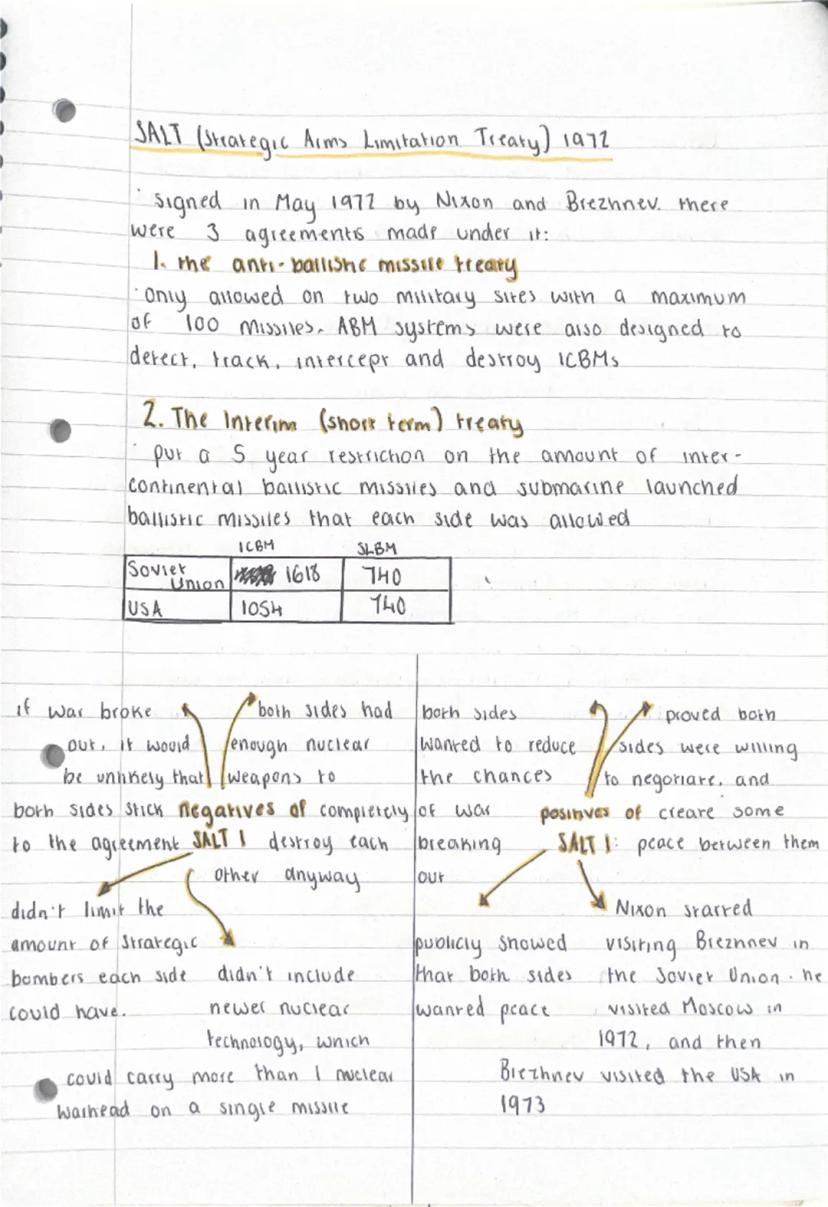 SALT (Strategic Arms Limitation Treaty) 1972
· signed in May 1972 by Nixon and Brezhnev. there
were 3 agreements made under it:
1. the anti-ballistic missile treaty
· only allowed on two military sites with a maximum
of 100 missiles. ABM systems were also designed to
detect, track, intercept and destroy ICBMs
2. The Interim (short term) treaty
· put a 5 year restriction on the amount of inter-
continental ballistic missiles and submarine launched
ballistic missiles that each side was allowed
ICBM SLBM
Soviet Union 1618 740
USA 1054 740
if war broke
out, it would
be unlikely that
both sides stick
to the agreement
both sides had
enough nuclear
weapons to
completely
destroy each
other anyway
negatives of
SALT 1
didn't limit the
amount of strategic
bombers each side
could have.
didn't include
newer nuclear
technology, which
could carry more than 1 nuclear
warhead on a single missile
both sides
wanted to reduce
the chances
of war
breaking
out
proved both
sides were willing
to negotiate, and
create some
peace between them
positives of
SALT 1:
publicly showed
that both sides
wanted peace
Nixon started
visiting Brezhnev in
the Soviet Union. he
visited Moscow in
1972, and then
Brezhnev visited the USA in
1973